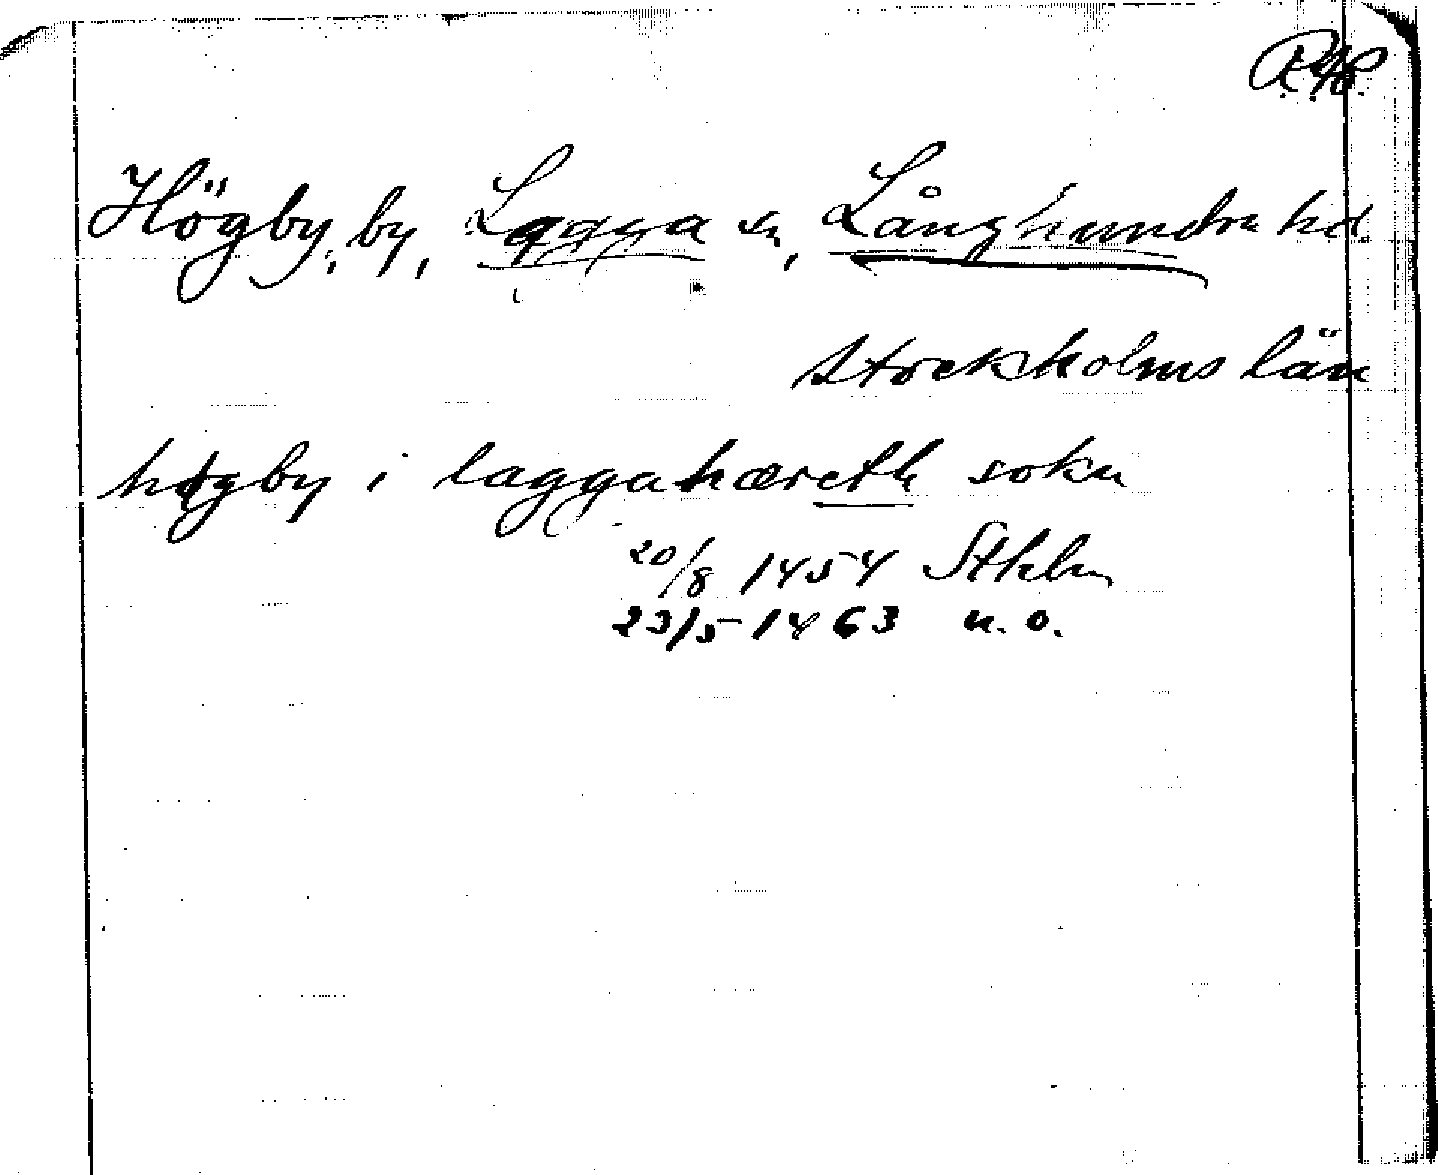 R.A.
Högby, by, Lagga sn, Långhundra hd
Stockholms län
høgby i laggahæreth sokn
20/8 1454 Sthlm
23/5 1463 u.o.